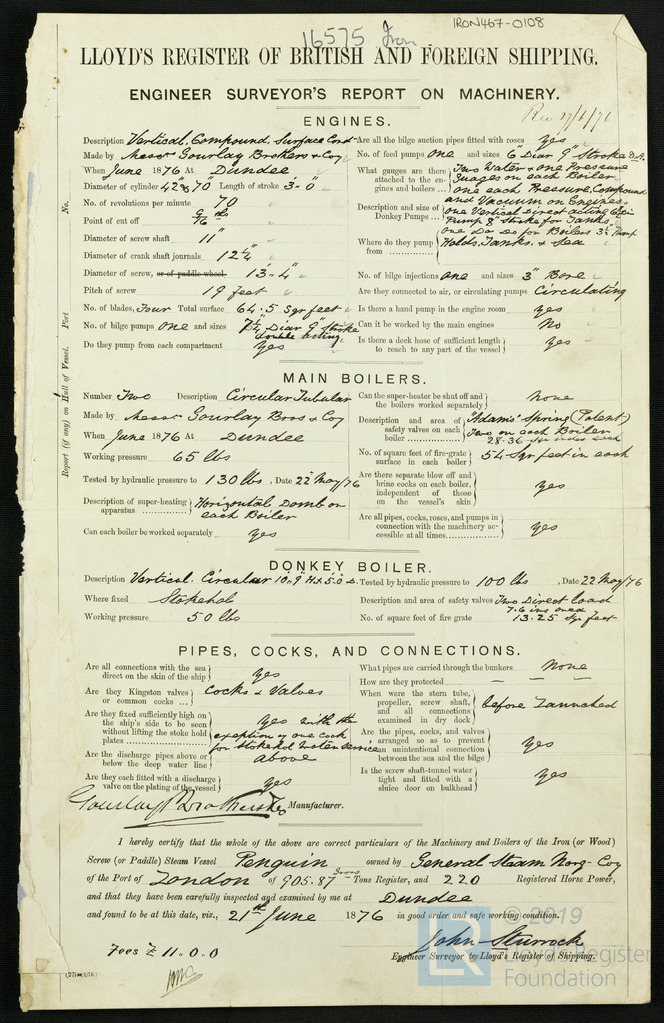 IRON467-0108
16575 Iron
LLOYD'S REGISTER OF BRITISH AND FOREIGN SHIPPING.
ENGINEER SURVEYOR'S REPORT ON MACHINERY.
Rec 27/6/76
ENGINES.
No.
Port
Report (if any) on Hull of Vessel.
Description Vertical, Compound, Surface Cond
Made by Messrs Gourlay Brothers & Coy
When June 1876 At Dundee
Diameter of cylinder 42 & 70" Length of stroke 3'.0"
No. of revolutions per minute 70
Point of cut off
Diameter of screw shaft 11"
Diameter of crank shaft journals 12 1/4"
Diameter of screw, or of paddle wheel 13.4"
Pitch of screw 19 feet
No. of blades, Four Total surface 64.5 Sqr feet
No. of bilge pumps one and sizes 7 1/4" Diar 9" Stroke
double acting
Do they pump from each compartment Yes
Are all the bilge suction pipes fitted with roses Yes
No. of feed pumps One and sizes 6" Diar 9" Stroke D.A.
What gauges are there attached to the engines and boilers Two Water & one Pressure
Guages on each Boiler
one each Pressure, Compound
and Vacuum on Engines
Description and size of Donkey Pumps one Vertical Direct acting
Pump 8" Stroke for Tanks
one Do Do for Boilers 3 1/2" Pump
Where do they pump from Holds, Tanks, & Sea
No. of bilge injections one and sizes 3" Bore
Are they connected to air, or circulating pumps Circulating
Is there a hand pump in the engine room Yes
Can it be worked by the main engines No
Is there a deck hose of sufficient length to reach to any part of the vessel Yes
MAIN BOILERS.
Number Two Description Circular Tubular
Made by Messrs Gourlay Bros & Coy
When June 1876 At Dundee
Working pressure 65 lbs
Tested by hydraulic pressure to 130 lbs, Date 22nd May/76
Description of super-heating apparatus Horizontal Domb on
each Boiler
Can each boiler be worked separately Yes
Can the super-heater be shut off and the boilers worked separately none
Description and area of safety valves on each boiler "Adams" Spring (Patent)
Two on each Boiler
28.36 Sqr inches each
No. of square feet of fire-grate surface in each boiler 54 Sqr feet in each
Are there separate blow off and brine cocks on each boiler, independent of those on the vessel's skin Yes
Are all pipes, cocks, roses, and pumps in connection with the machinery accessible at all times Yes
DONKEY BOILER.
Description Vertical. Circular 10'.9" H x 5'.0" D. Tested by hydraulic pressure to 100 lbs, Date 22 May/76
Where fixed Stokehold
Description and area of safety valves Two Direct load
7.6 ins area
Working pressure 50 lbs
No. of square feet of fire grate 13.25 Sqr feet
PIPES, COCKS, AND CONNECTIONS.
Are all connections with the sea direct on the skin of the ship Yes
Are they Kingston valves or common cocks Cocks & Valves
Are they fixed sufficiently high on the ship's side to be seen without lifting the stoke hold plates Yes with the
exception of one cock
for stokehold water service
Are the discharge pipes above or below the deep water line above
Are they each fitted with a discharge valve on the plating of the vessel Yes
What pipes are carried through the bunkers None
How are they protected — — —
When were the stern tube, propeller, screw shaft, and all connections examined in dry dock before Launched
Are the pipes, cocks, and valves arranged so as to prevent an unintentional connection between the sea and the bilge Yes
Is the screw shaft-tunnel water tight and fitted with a sluice door on bulkhead Yes
Gourlay Brothers & Co Manufacturer.
I hereby certify that the whole of the above are correct particulars of the Machinery and Boilers of the Iron (or Wood)
Screw (or Paddle) Steam Vessel Penguin owned by General Steam Navg. Coy
of the Port of London of 905.87 Gross Tons Register, and 220 Registered Horse Power,
and that they have been carefully inspected and examined by me at Dundee
and found to be at this date, viz., 21st June 1876 in good order and safe working condition.
Fees £ 11.0.0
John Sturrock
Engineer Surveyor to Lloyd's Register of Shipping.
© 2019
LR Lloyd's Register
Foundation